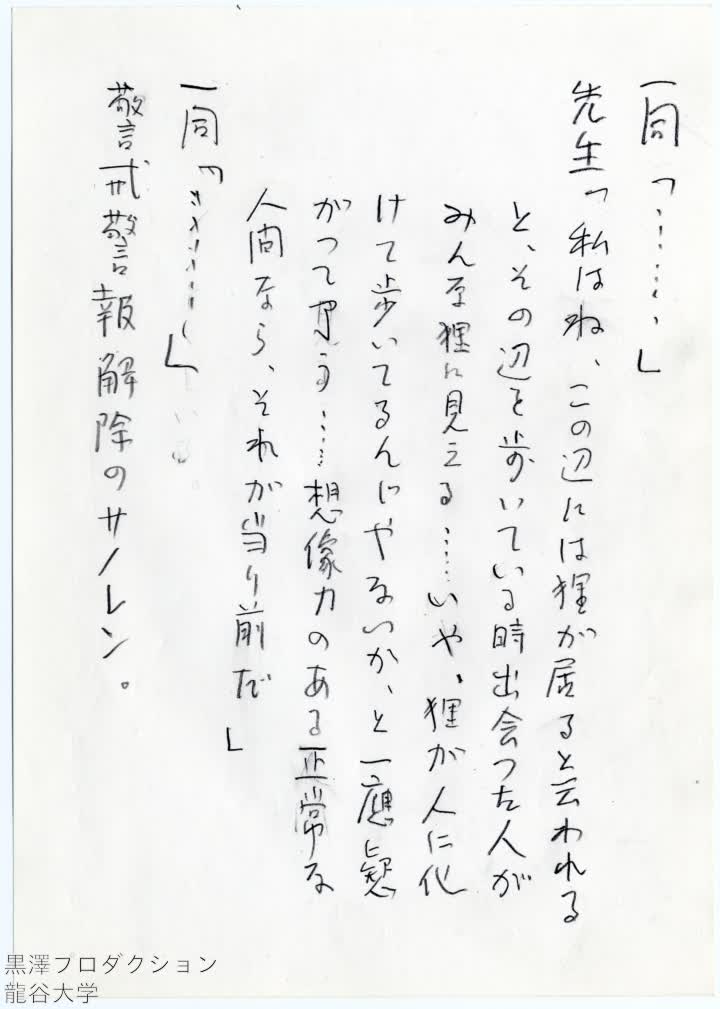 一同「………」
先生「私はね、この辺には狸が居ると云われる
と、その辺を歩いている時出会った人が
みんな狸に見える……いや、狸が人に化
けて歩いてるんじゃないか、と一應
がって見る……想像力のある正常な
人間なら、それが当り前だ」
一同「………」
警戒警報解除のサイレン。
黒澤プロダクション
龍谷大学